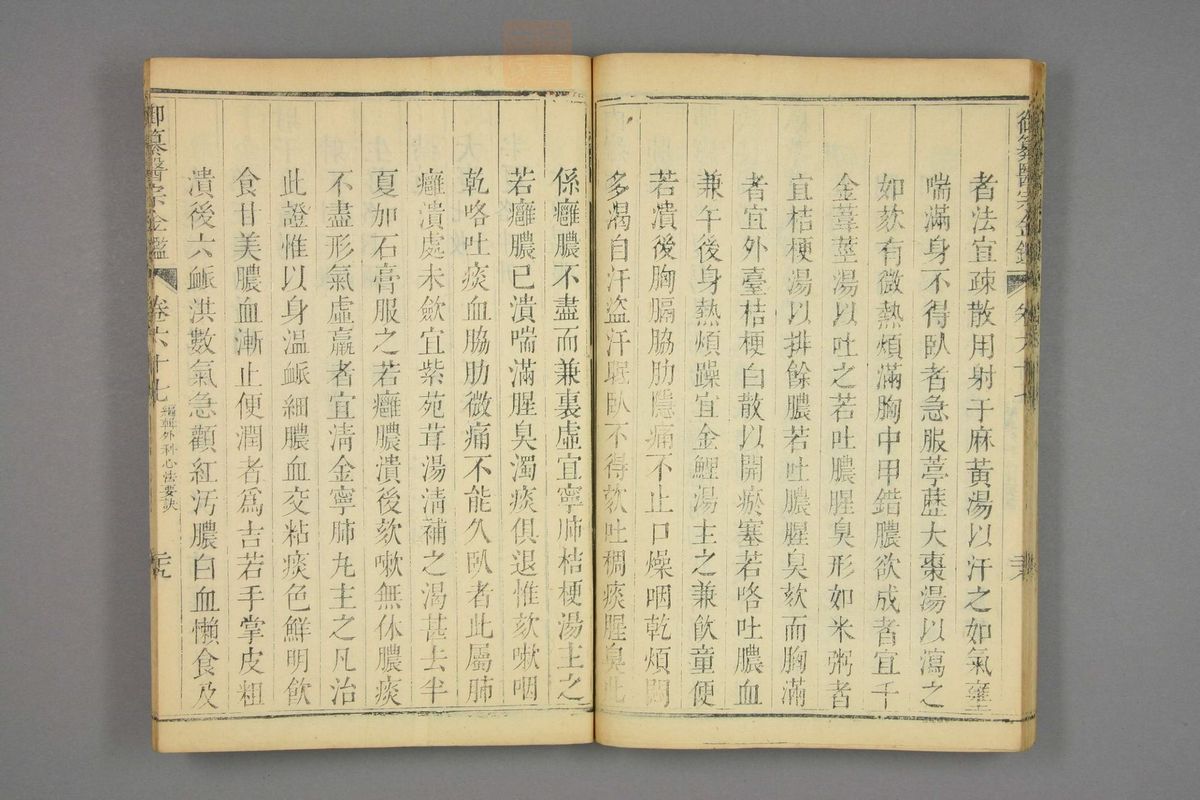 者法宜疎散用射干麻黃湯以汗之如氣壅
喘滿身不得臥者急服葶藶大棗湯以瀉之
如欬有微熱煩滿胸中甲錯膿欲成者宜千
金葦莖湯以吐之若吐膿腥臭形如米粥者
宜桔梗湯以排餘膿若吐膿腥臭欬而胸滿
者宜外臺桔梗白散以開瘀塞若咯吐膿血
兼午後身熱煩躁宜金鯉湯主之兼飲童便
若潰後胸膈脇肋隱痛不止口燥咽乾煩悶
多渴自汗盜汗眠臥不得欬吐稠痰腥臭此
係癰膿不盡而兼裏虛宜寧肺桔梗湯主之
若癰膿已潰喘滿腥臭濁痰俱退惟欬嗽咽
乾咯吐痰血脇肋微痛不能久臥者此屬肺
癰潰處未斂宜紫苑茸湯清補之渴甚去半
夏加石膏服之若癰膿潰後欬嗽無休膿痰
不盡形氣虛羸者宜清金寧肺丸主之凡治
此證惟以身溫脈細膿血交粘痰色鮮明飲
食甘美膿血漸止便潤者爲吉若手掌皮粗
潰後六脈洪數氣急顴紅污膿白血懶食及
御纂醫宗金鑑 卷六十七 編輯外科心法要訣